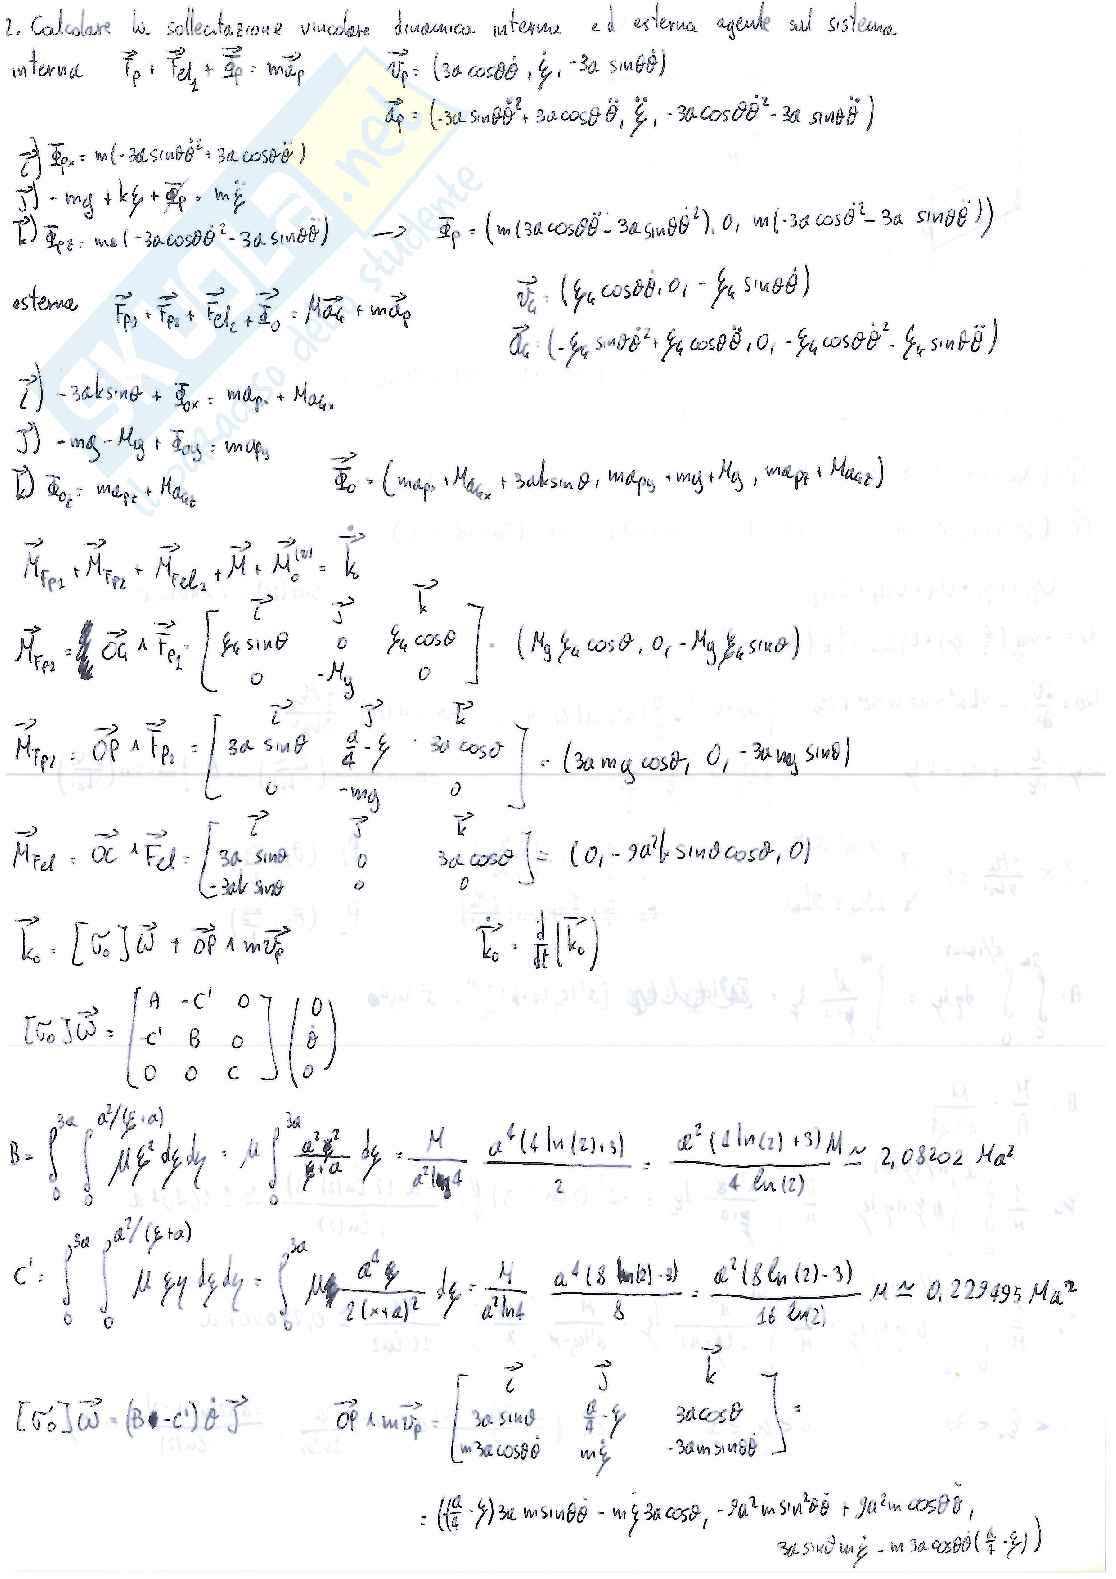 2. Calcolare la sollecitazione vincolare dinamica interna ed esterna agente sul sistema
interna F⃗p + F⃗el₁ + Φ⃗p = ma⃗p   v⃗p = (3a cosθθ̇, ξ̇, -3a sinθθ̇)
a⃗p = (-3a sinθθ̇² + 3a cosθθ̈, ξ̈, -3a cosθθ̇² - 3a sinθθ̈)
i⃗) Φpx = m(-3a sinθθ̇² + 3a cosθθ̈)
j⃗) -mg + kξ + Φp = mξ̈
k⃗) Φpz = m(-3a cosθθ̇² - 3a sinθθ̈) → Φp = (m(3a cosθθ̈ - 3a sinθθ̇²), 0, m(-3a cosθ̇² - 3a sinθθ̈))
esterna F⃗p₁ + F⃗p₂ + F⃗el₂ + Φ⃗o = Ma⃗G + ma⃗p   v⃗G = (ξG cosθθ̇, 0, -ξG sinθθ̇)
a⃗G = (-ξG sinθθ̇² + ξG cosθθ̈, 0, -ξG cosθθ̇² - ξG sinθθ̈)
i⃗) -3ak sinθ + Φox = mapx + MaGx
j⃗) -mg - Mg + Φoy = mapy
k⃗) Φoz = mapz + MaGz   Φ⃗o = (mapx + MaGx + 3ak sinθ, mapy + mg + Mg, mapz + MaGz)
M⃗Fp₁ + M⃗Fp₂ + M⃗Fel₂ + M⃗ + M⃗o⁽ᵛ⁾ = k̇⃗o
i⃗ j⃗ k⃗
M⃗Fp₁ = OG⃗ ∧ F⃗p₁ = [ξG sinθ 0 ξG cosθ] = (Mg ξG cosθ, 0, -Mg ξG sinθ)
0 -Mg 0
i⃗ j⃗ k⃗
M⃗Fp₂ = OP⃗ ∧ F⃗p₂ = [3a sinθ a/4 - ξ 3a cosθ] = (3amg cosθ, 0, -3amg sinθ)
0 -mg 0
i⃗ j⃗ k⃗
M⃗Fel = OC⃗ ∧ F⃗el = [3a sinθ 0 3a cosθ] = (0, -9a²k sinθ cosθ, 0)
-3ak sinθ 0 0
k⃗o = [σo]ω⃗ + OP⃗ ∧ mv⃗p   k̇⃗o = d/dt (k⃗o)
A -C' 0   0
[σo]ω⃗ = -C' B 0   θ̇
0 0 C   0
B = ∫₀³ᵃ ∫₀^(a²/(ξ+a)) μξ² dξdη = μ ∫₀³ᵃ a²ξ²/(ξ+a) dξ = M/(a² log4) a⁴(4 ln(2)+3)/2 = a²(4 ln(2)+3)M/(4 ln(2)) ≃ 2,08202 Ma²
C' = ∫₀³ᵃ ∫₀^(a²/(ξ+a)) μξη dξdη = ∫₀³ᵃ μ a⁴ξ/(2(x+a)²) dξ = M/(a² ln4) a⁴(8 ln(2)-3)/8 = a²(8 ln(2)-3)/(16 ln(2)) M ≃ 0,229495 Ma²
i⃗ j⃗ k⃗
[σo]ω⃗ = (B - C')θ̇ j⃗   OP⃗ ∧ mv⃗p = [3a sinθ a/4 - ξ 3a cosθ] =
m3a cosθθ̇ mξ̇ -3am sinθθ̇
= ((a/4 - ξ)3a m sinθθ̇ - mξ̇3a cosθ, -9a²m sin²θθ̇ + 9a²m cosθθ̇,
3a sinθmξ̇ - m3a cosθθ̇(a/4 - ξ))
SKUOLA.net
studente